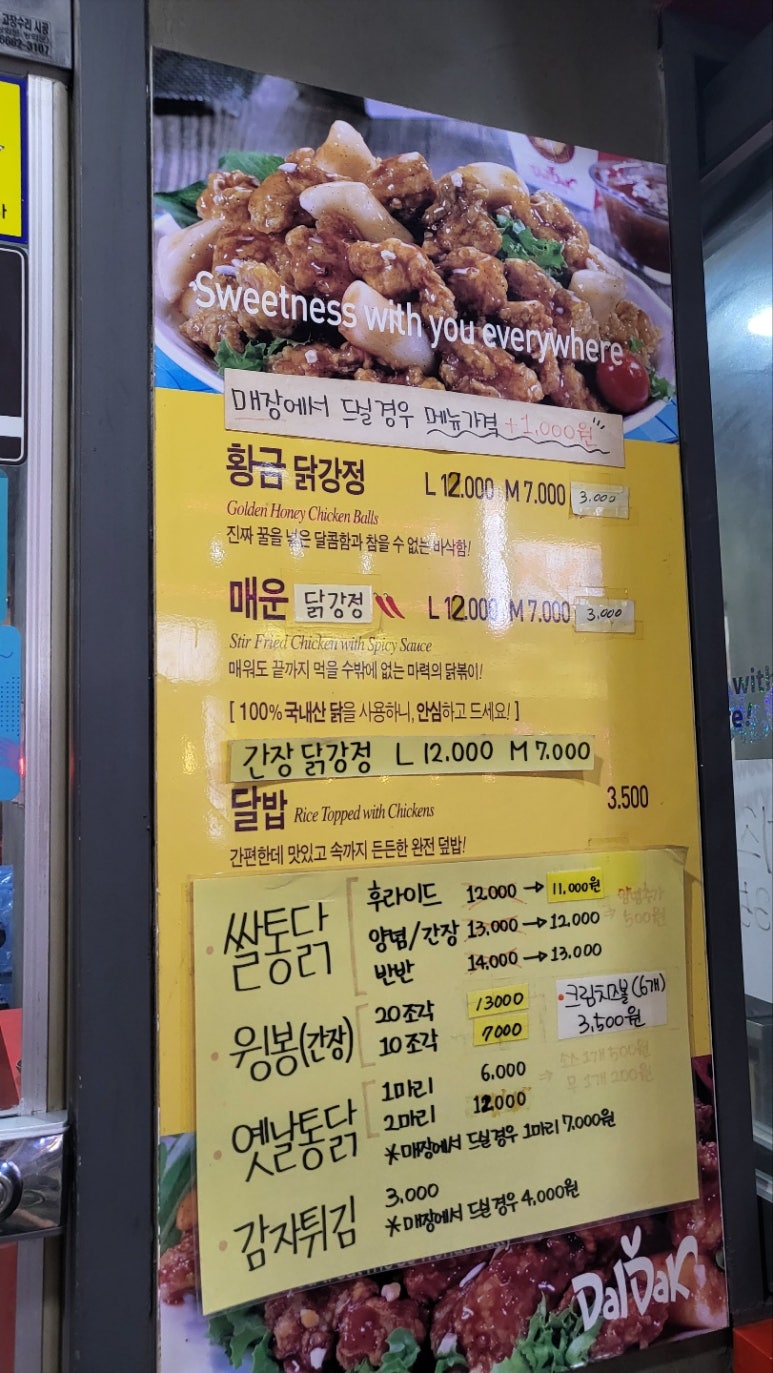 고장수리 시공
6602-3107
Sweetness with you everywhere
매장에서 드실경우 메뉴가격 +1,000원
황금 닭강정 L 12.000 M 7.000 3,000
Golden Honey Chicken Balls
진짜 꿀을 넣은 달콤함과 참을 수 없는 바삭함!
매운 닭강정 L 12.000 M 7.000 3,000
Stir Fried Chicken with Spicy Sauce
매워도 끝까지 먹을 수밖에 없는 마력의 닭볶이!
[ 100% 국내산 닭을 사용하니, 안심하고 드세요! ]
간장 닭강정 L 12.000 M 7.000
달밥 Rice Topped with Chickens 3.500
간편한데 맛있고 속까지 든든한 완전 덮밥!
• 쌀통닭
후라이드 12.000 → 11,000원
양념/간장 13,000 → 12.000
반반 14,000 → 13.000
양념추가
500원
• 윙봉(간장)
20조각 13000
10조각 7000
• 크림치즈볼(6개)
3,500원
소스 1개 500원
무 1개 200원
• 옛날통닭
1마리 6.000
2마리 12000
※매장에서 드실경우 1마리 7.000원
• 감자튀김
3,000
※매장에서 드실경우 4,000원
DalDak
with
e!